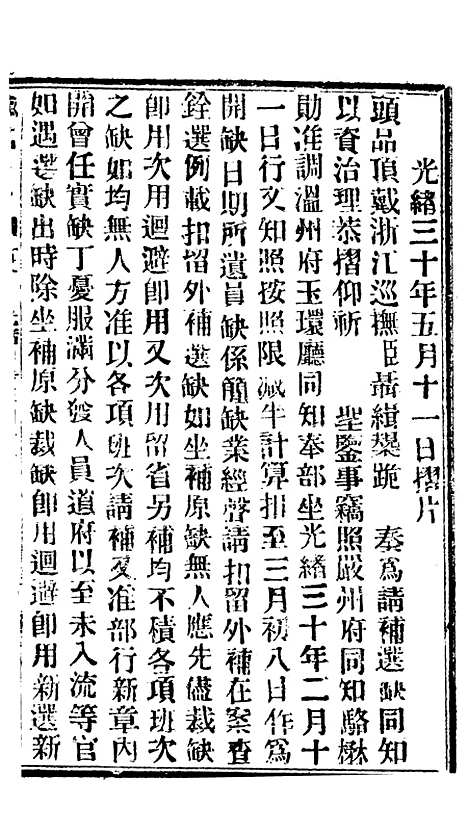 光緒三十年五月十一日摺片
頭品頂戴浙江巡撫臣聶緝槼跪 奏爲請補選缺同知
以資治理恭摺仰祈 聖鑒事竊照嚴州府同知駱楙
勛准調溫州府玉環廳同知奉部坐光緒三十年二月十
一日行文知照按照限減半計算扣至三月初八日作爲
開缺日期所遺員缺係簡缺業經聲請扣留外補在案查
銓選例載扣留外補選缺如坐補原缺無人應先儘裁缺
卽用次用迴避卽用又次用留省另補均不積各項班次
之缺如均無人方准以各項班次請補又准部行新章內
開曾任實缺丁憂服滿分發人員道府以至未入流等官
如遇選缺出時除坐補原缺裁缺卽用迴避卽用新選新